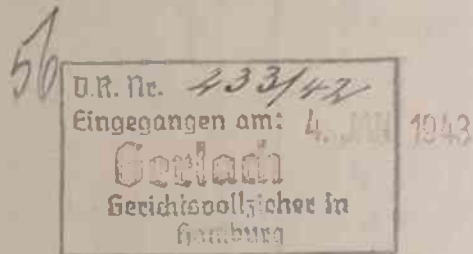 56
D.R. Nr. 433/42
Eingegangen am: 4. JAN 1943
Gerlach
Gerichtsvollzieher in
Hamburg